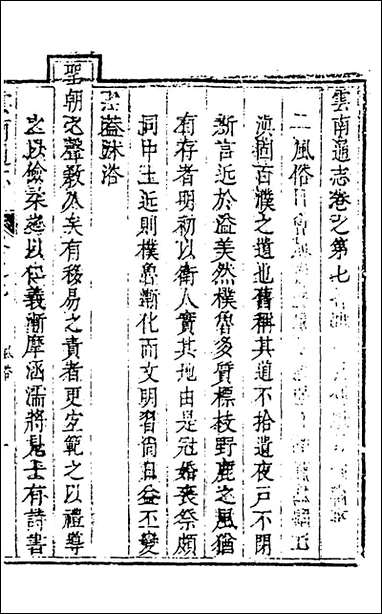 雲南通志卷之第七
風俗
滇固百濮之遺也舊稱其道不拾遺夜戸不閉
斯言近於溢美然樸魯多質標枝野鹿之風猶
有存者明初以衛人實其地由是冠婚喪祭頗
同中土近則樸魯漸化而文明習尚日益丕變
聖朝之聲敎久矣有移易之責者更宜範之以禮導
之以儉柔之以仁義漸摩涵濡將見士有詩書